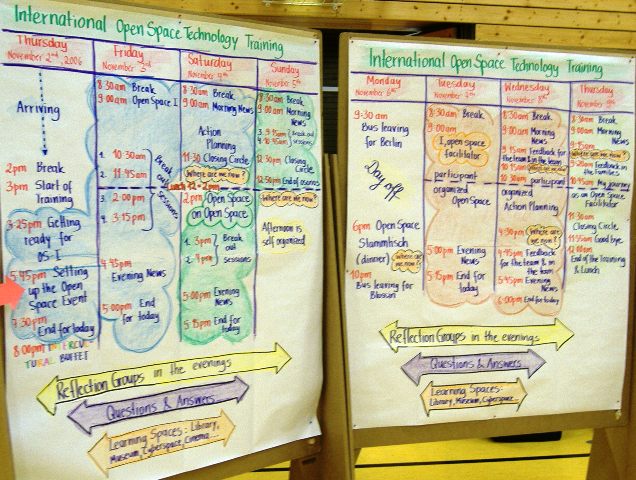 International Open Space Technology Training
Thursday
November 2nd, 2006
Arriving
2pm Break
3pm Start of
Training
3-25pm Getting
ready for
OS-I
5:45pm Setting
up the Open
Space Event
7:30pm
End for today
8:00pm INTERCUL
TURAL BUFFET
Friday
November 3rd
8:30am Break
9:00am Open Space I
1. 10:30am
2. 11:45am
3. 2:00pm
4. 3:15pm
Break out
sessions
4:45pm
Evening News
5:00pm End
for today
Saturday
November 4th
8:30am Break
9:00am Morning News
Action
Planning
11:30 Closing Circle
Where are me now?
Lunch 12-2pm
2pm Open Space
on Open Space
1. 3pm
2. 4pm
Break
out
sessions
5:00pm
Evening
News
5:15pm End
for today
Sunday
November 5th
8:30am Break
9:00am
Morning
News
3. 9:15am
4. 10:45am
Break out
sessions
12:30pm Closing
Circle
12:50pm End of
Where are me now?
Afternoon is
self organized
Reflection Groups in the evenings
Questions & Answers
Learning Spaces: Library,
Museum, Cyberspace, Cinema....
International Open Space Technology Training
Monday
November 6th
9:30am
Bus leaving
for Berlin
Day off
6pm Open Space
Stammtisch
(dinner)
Where are
me now?
10pm
Bus leaving for
Blossin
Tuesday
November 7th
8:30am Break
9:00am
I, open space
facilitator
participant
organized
Open Space
5:00pm Evening
News
5:15pm End for
today
Wednesday
November 8th
8:30am Break
9:00am Morning
News
9:15am Feedback for
the team & in the team
10:15am Where are me now?
10:30am participant
organized
Action Planning
4:30pm Where are
me now?
4:45pm Feedback
for the team & in
the team
5:45pm Evening
News
6:00pm End for today
Thursday
November 9th
8:30am Break
9:00am Morning
News
9:15am
Where are me now?
9:25am Feedback in
the Families
10:45am My journey
as an Open Space
Facilitator
11:30am
Closing Circle
11:55am Good bye
12:00am
End of the Training
& Lunch
Reflection Groups in the evenings
Questions & Answers
Learning Spaces:
Library, Museum, Cyberspace...